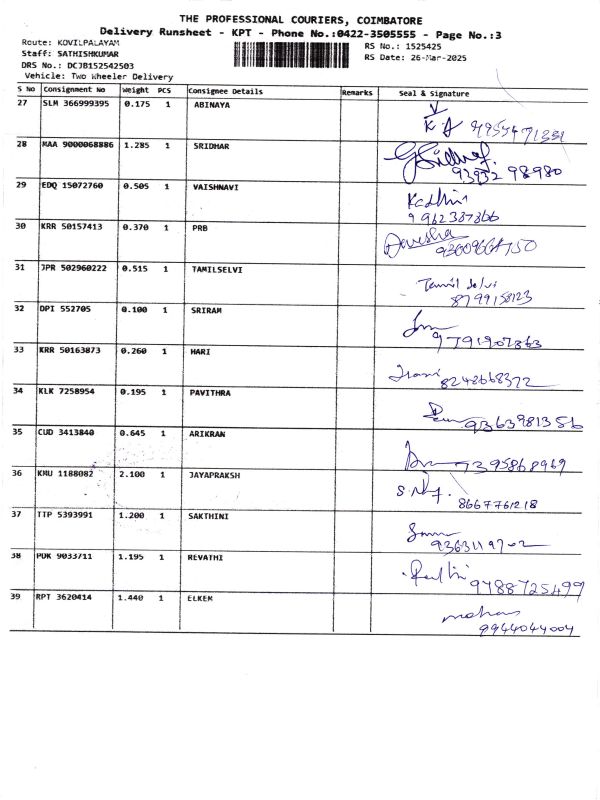 THE PROFESSIONAL COURIERS, COIMBATORE
Delivery Runsheet - KPT - Phone No.:0422-3505555 - Page No.:3
Route: KOVILPALAYAM RS No.: 1525425
Staff: SATHISHKUMAR RS Date: 26-Mar-2025
DRS No.: DCJB152542503
Vehicle: Two Wheeler Delivery
S No Consignment No Weight PCS Consignee Details Remarks Seal & Signature
27 SLM 366999395 0.175 1 ABINAYA
28 MAA 9000068886 1.285 1 SRIDHAR
93932 98980
29 EDQ 15072760 0.505 1 VAISHNAVI
9962387866
30 KRR 50157413 0.370 1 PRB
31 JPR 502960222 0.515 1 TAMILSELVI
Tamil Selvi
8799158123
32 DPI 552705 0.100 1 SRIRAM
9791907863
33 KRR 50163873 0.260 1 HARI
8248668372
34 KLK 7258954 0.195 1 PAVITHRA
9363981356
35 CUD 3413840 0.645 1 ARIKRAN
9395868969
36 KMU 1188082 2.100 1 JAYAPRAKSH
8667761218
37 TTP 5393991 1.200 1 SAKTHINI
9363119702
38 PDK 9033711 1.195 1 REVATHI
9788725499
39 RPT 3620414 1.440 1 ELKEM
9944044004